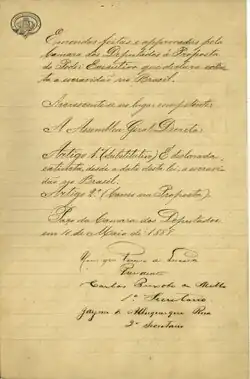 Emendas feitas e approvadas pela
Camara dos Deputados á Proposta
do Poder Executivo que declara extinc-
ta a escravidão no Brasil.
Accrescente-se no lugar competente:
A Assembléa Geral Decreta:
Artigo 1.º (Substitutivo) É declarada
extincta, desde a data desta lei, a escravi-
dão no Brasil.
Artigo 2.º (Como na Proposta).
Paço da Camara dos Deputados
em 10 de Maio de 1888
Henrique Pereira de Lucena
Presidente
Carlos Peixoto de Mello
1º Secretario
Jayme de Albuquerque Rosa
2º Secretario